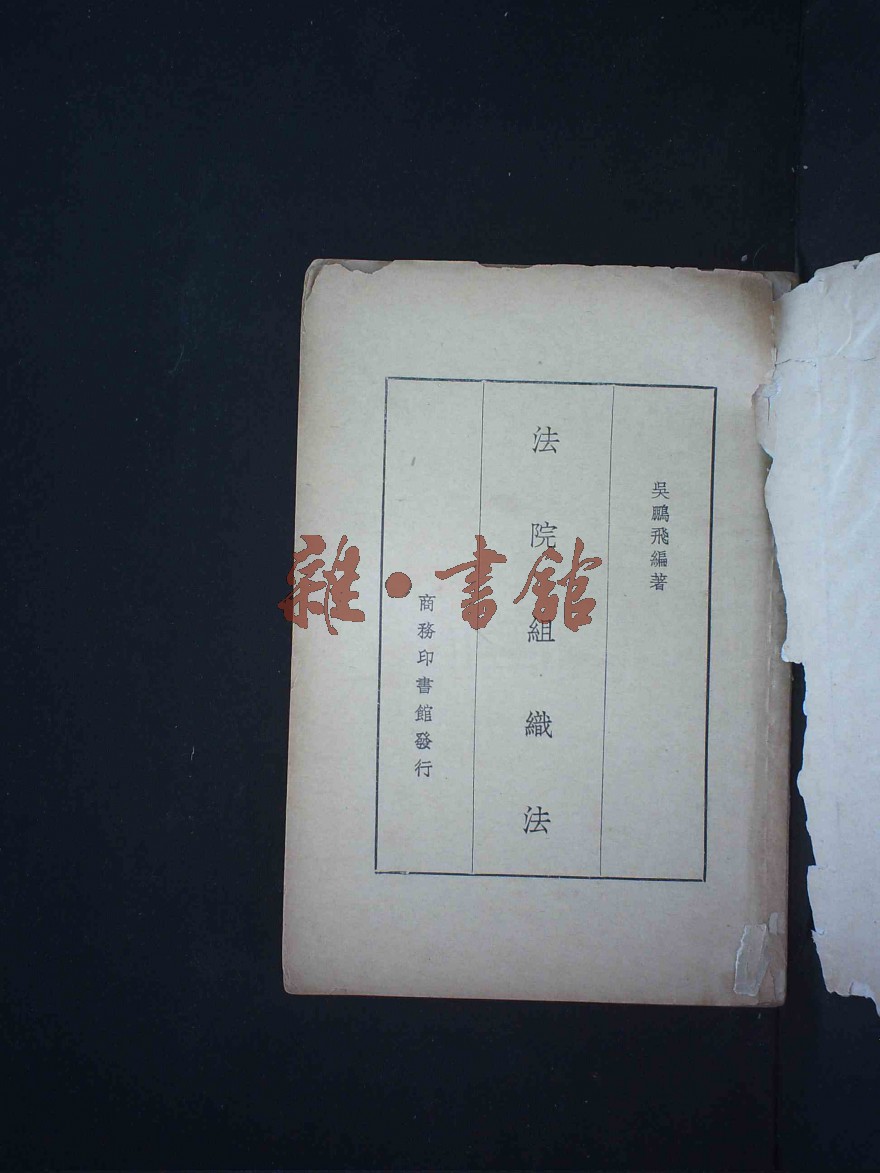 吳鵬飛編著
法院組織法
商務印書館發行
雜·書館